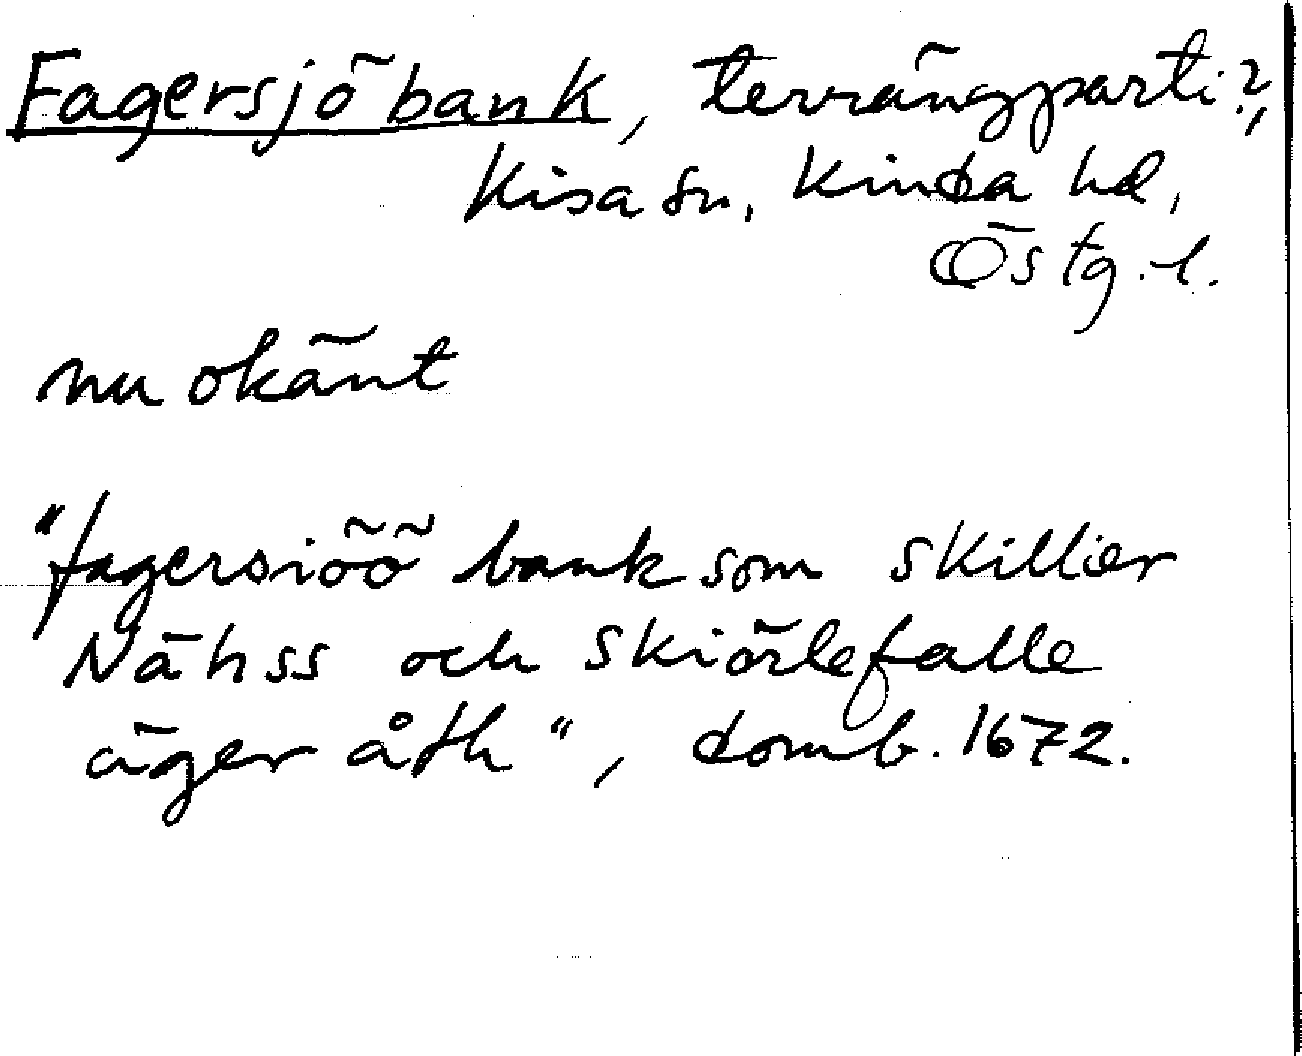 Fagersjö bank, terrängparti?,
Kisa sn, Kinda hd,
Östg. l.
nu okänt
"fagersiöö bank som skillier
Nähss och skiörlefalle
äger åth", domb. 1672.